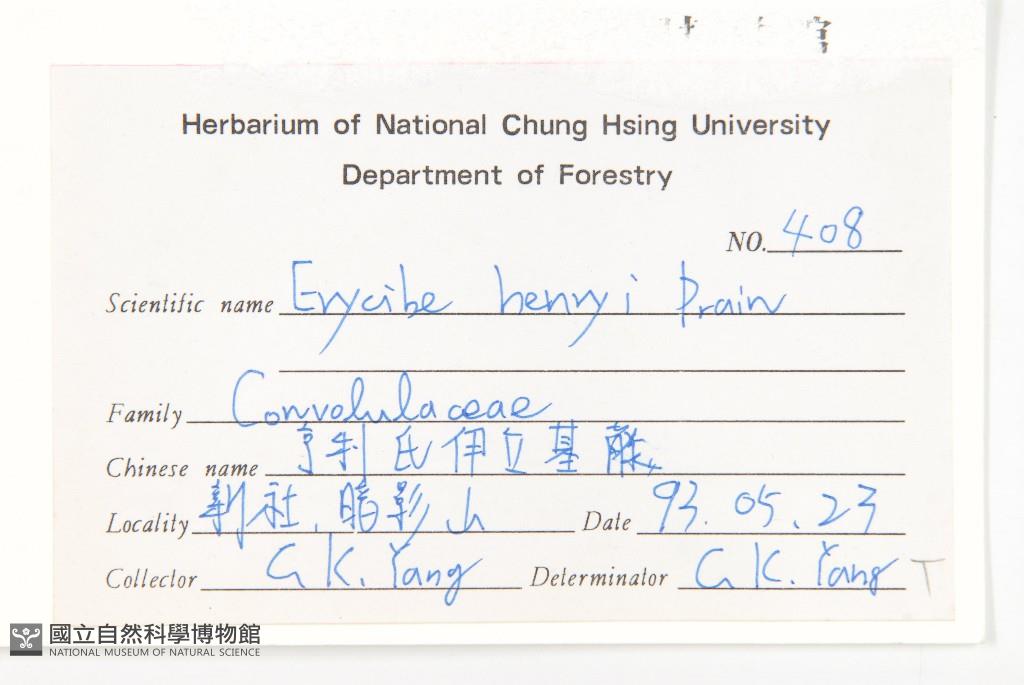 Herbarium of National Chung Hsing University
Department of Forestry
NO. 408
Scientific name Erycibe henryi Prain
Family Convolulaceae
Chinese name 亨利氏伊立基藤
Locality 新社, 暗影山 Date 93.05.23
Collector C. K. Yang Determinator C. K. Yang T
國立自然科學博物館
NATIONAL MUSEUM OF NATURAL SCIENCE